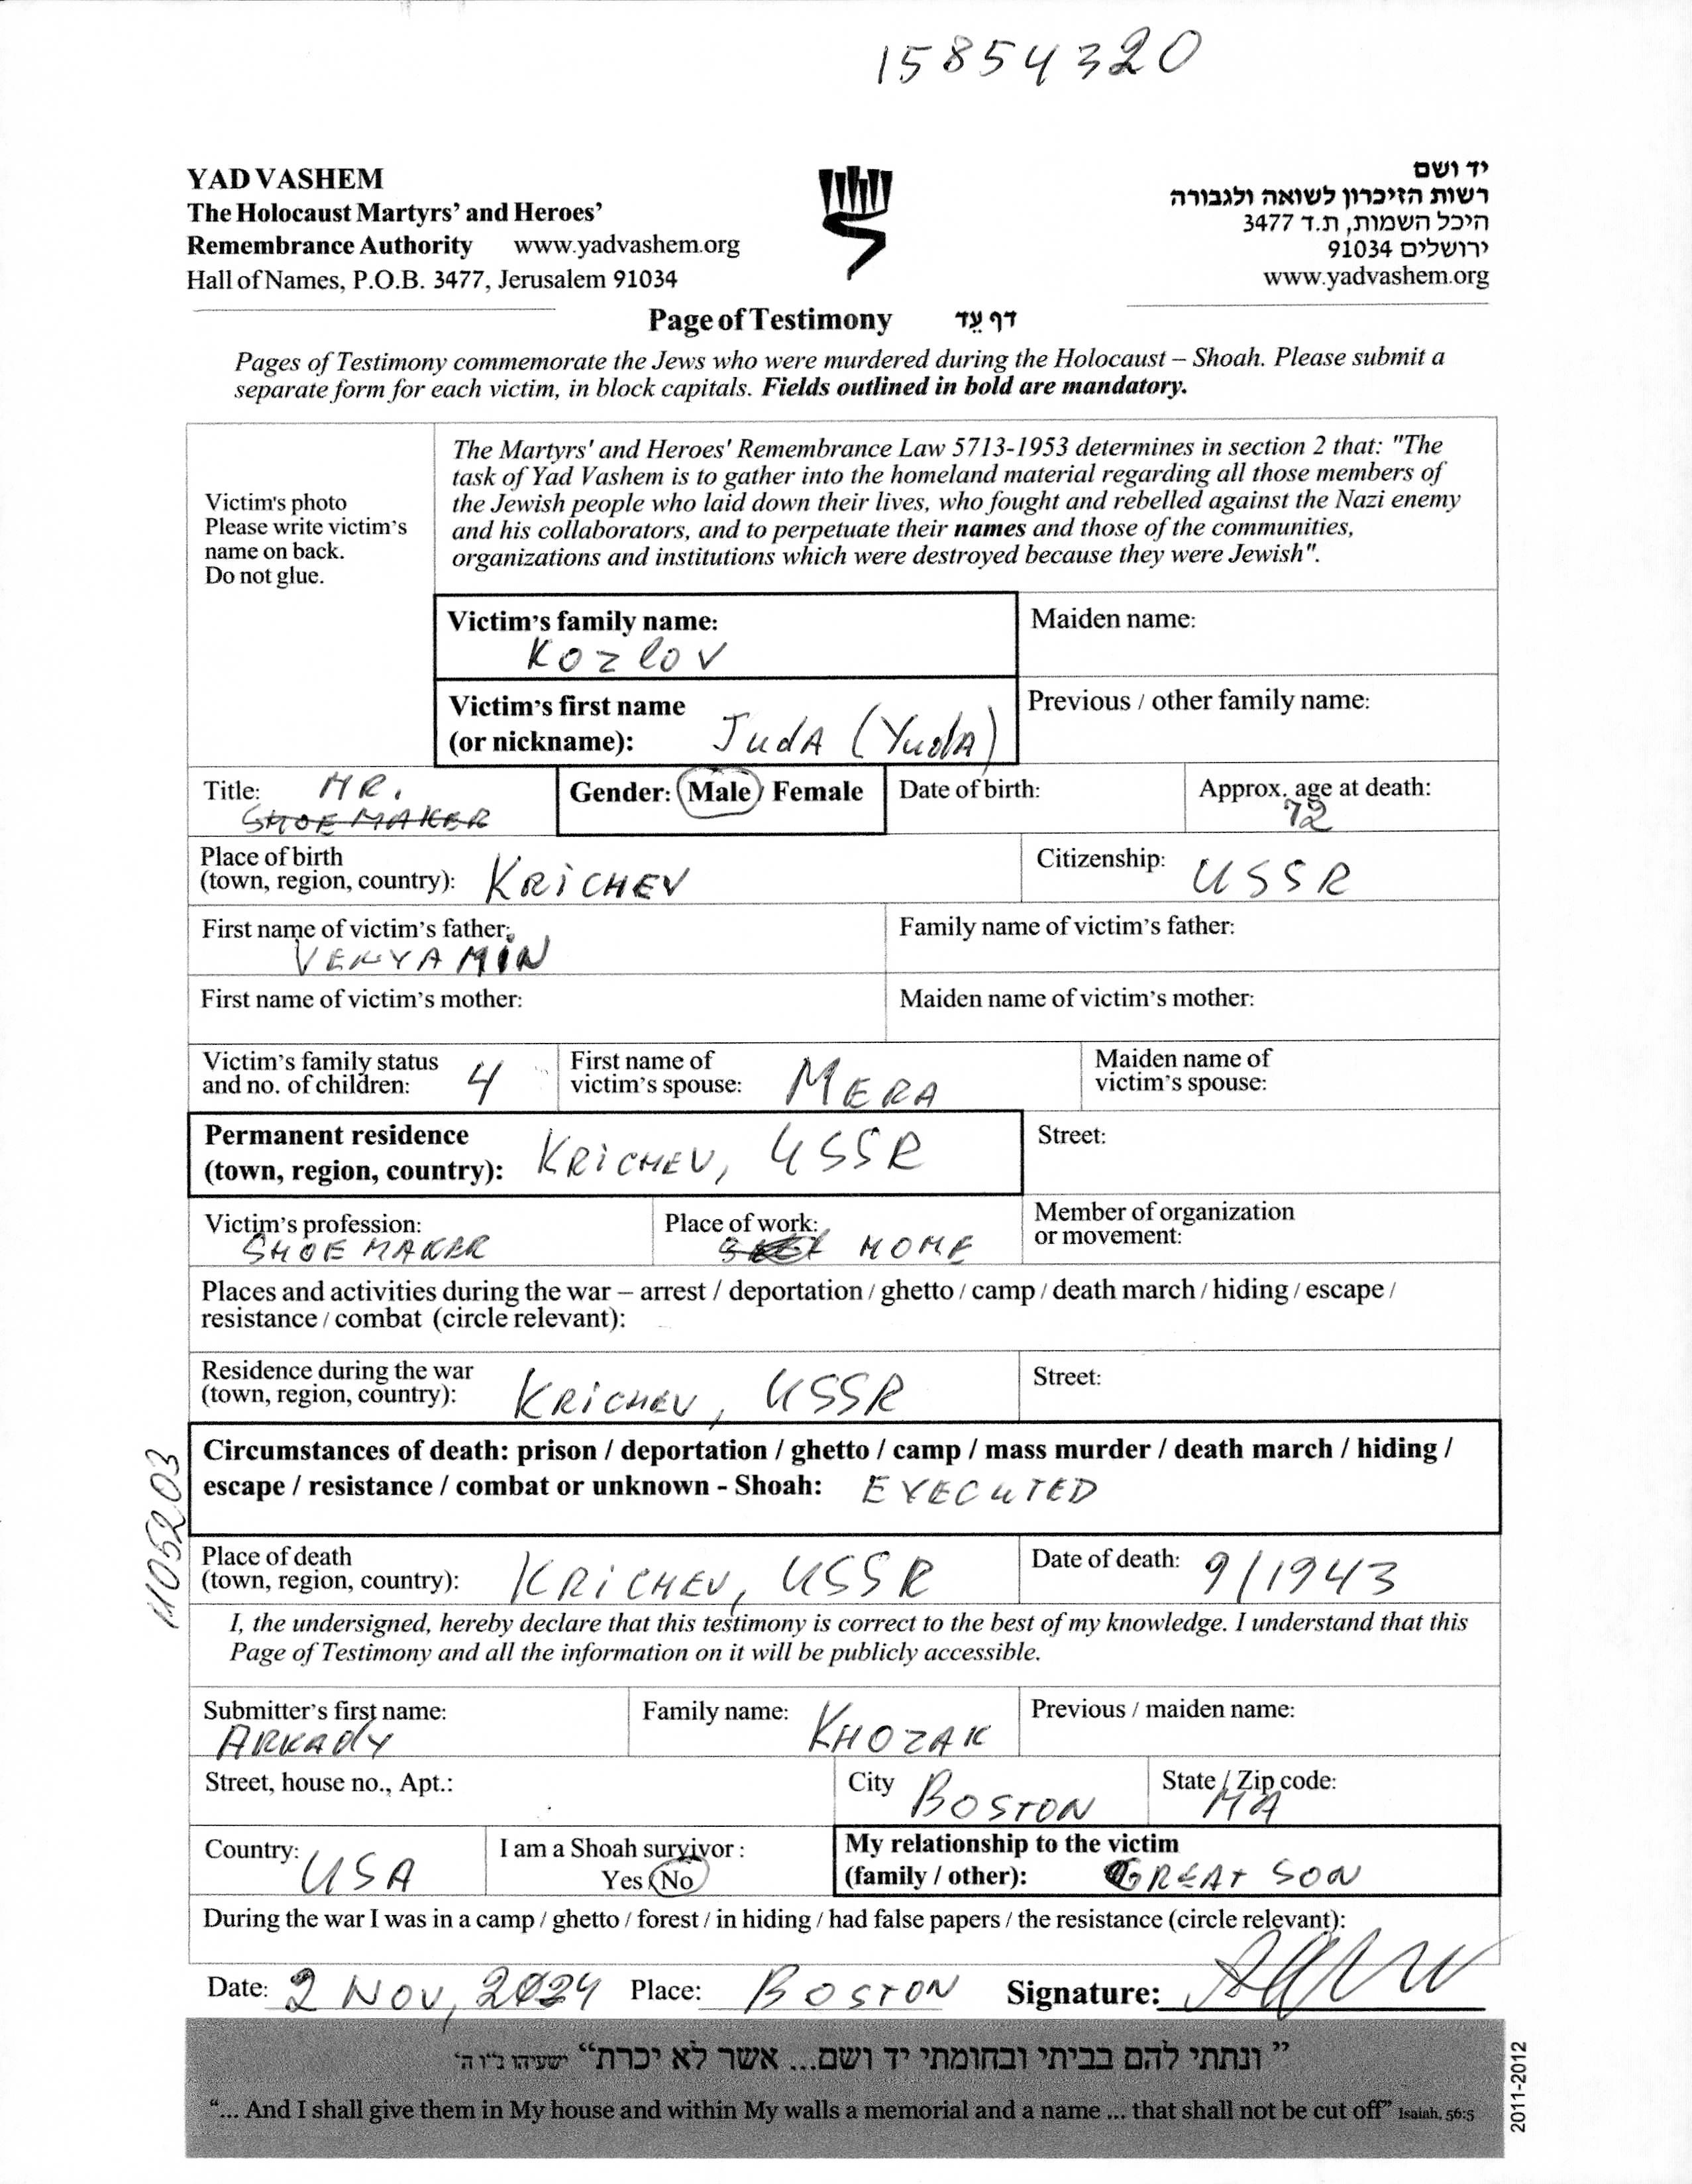 15854320
YAD VASHEM
The Holocaust Martyrs' and Heroes'
Remembrance Authority www.yadvashem.org
Hall of Names, P.O.B. 3477, Jerusalem 91034
יד ושם
רשות הזיכרון לשואה ולגבורה
היכל השמות, ת.ד 3477
ירושלים 91034
www.yadvashem.org
Page of Testimony דף עֵד
Pages of Testimony commemorate the Jews who were murdered during the Holocaust – Shoah. Please submit a
separate form for each victim, in block capitals. Fields outlined in bold are mandatory.
Victim's photo
Please write victim's
name on back.
Do not glue.
The Martyrs' and Heroes' Remembrance Law 5713-1953 determines in section 2 that: "The
task of Yad Vashem is to gather into the homeland material regarding all those members of
the Jewish people who laid down their lives, who fought and rebelled against the Nazi enemy
and his collaborators, and to perpetuate their names and those of the communities,
organizations and institutions which were destroyed because they were Jewish".
Victim's family name:
Kozlov
Maiden name:
Victim's first name
(or nickname): JudA (YudA)
Previous / other family name:
Title: MR.
SHOE MAKER
Gender: Male / Female
Date of birth:
Approx. age at death:
72
Place of birth
(town, region, country): KRiCHEV
Citizenship: USSR
First name of victim's father:
VENYAMiN
Family name of victim's father:
First name of victim's mother:
Maiden name of victim's mother:
Victim's family status
and no. of children: 4
First name of
victim's spouse: MERA
Maiden name of
victim's spouse:
Permanent residence
(town, region, country): KRiCHEV, USSR
Street:
Victim's profession:
SHOE MAKER
Place of work:
HOME
Member of organization
or movement:
Places and activities during the war – arrest / deportation / ghetto / camp / death march / hiding / escape /
resistance / combat (circle relevant):
Residence during the war
(town, region, country): KRiCHEV, USSR
Street:
Circumstances of death: prison / deportation / ghetto / camp / mass murder / death march / hiding /
escape / resistance / combat or unknown - Shoah: EXECUTED
Place of death
(town, region, country): KRiCHEV, USSR
Date of death: 9/1943
I, the undersigned, hereby declare that this testimony is correct to the best of my knowledge. I understand that this
Page of Testimony and all the information on it will be publicly accessible.
Submitter's first name:
ARKAdY
Family name: KHOZAK
Previous / maiden name:
Street, house no., Apt.:
City BOSTON
State / Zip code:
MA
Country: USA
I am a Shoah survivor :
Yes No
My relationship to the victim
(family / other): GREAT SON
During the war I was in a camp / ghetto / forest / in hiding / had false papers / the resistance (circle relevant):
Date: 2 NOV, 2024 Place: BOSTON Signature:
” ונתתי להם בביתי ובחומתי יד ושם... אשר לא יכרת“ ישעיהו נ"ו ה'
"... And I shall give them in My house and within My walls a memorial and a name ... that shall not be cut off" Isaiah, 56:5
2011-2012